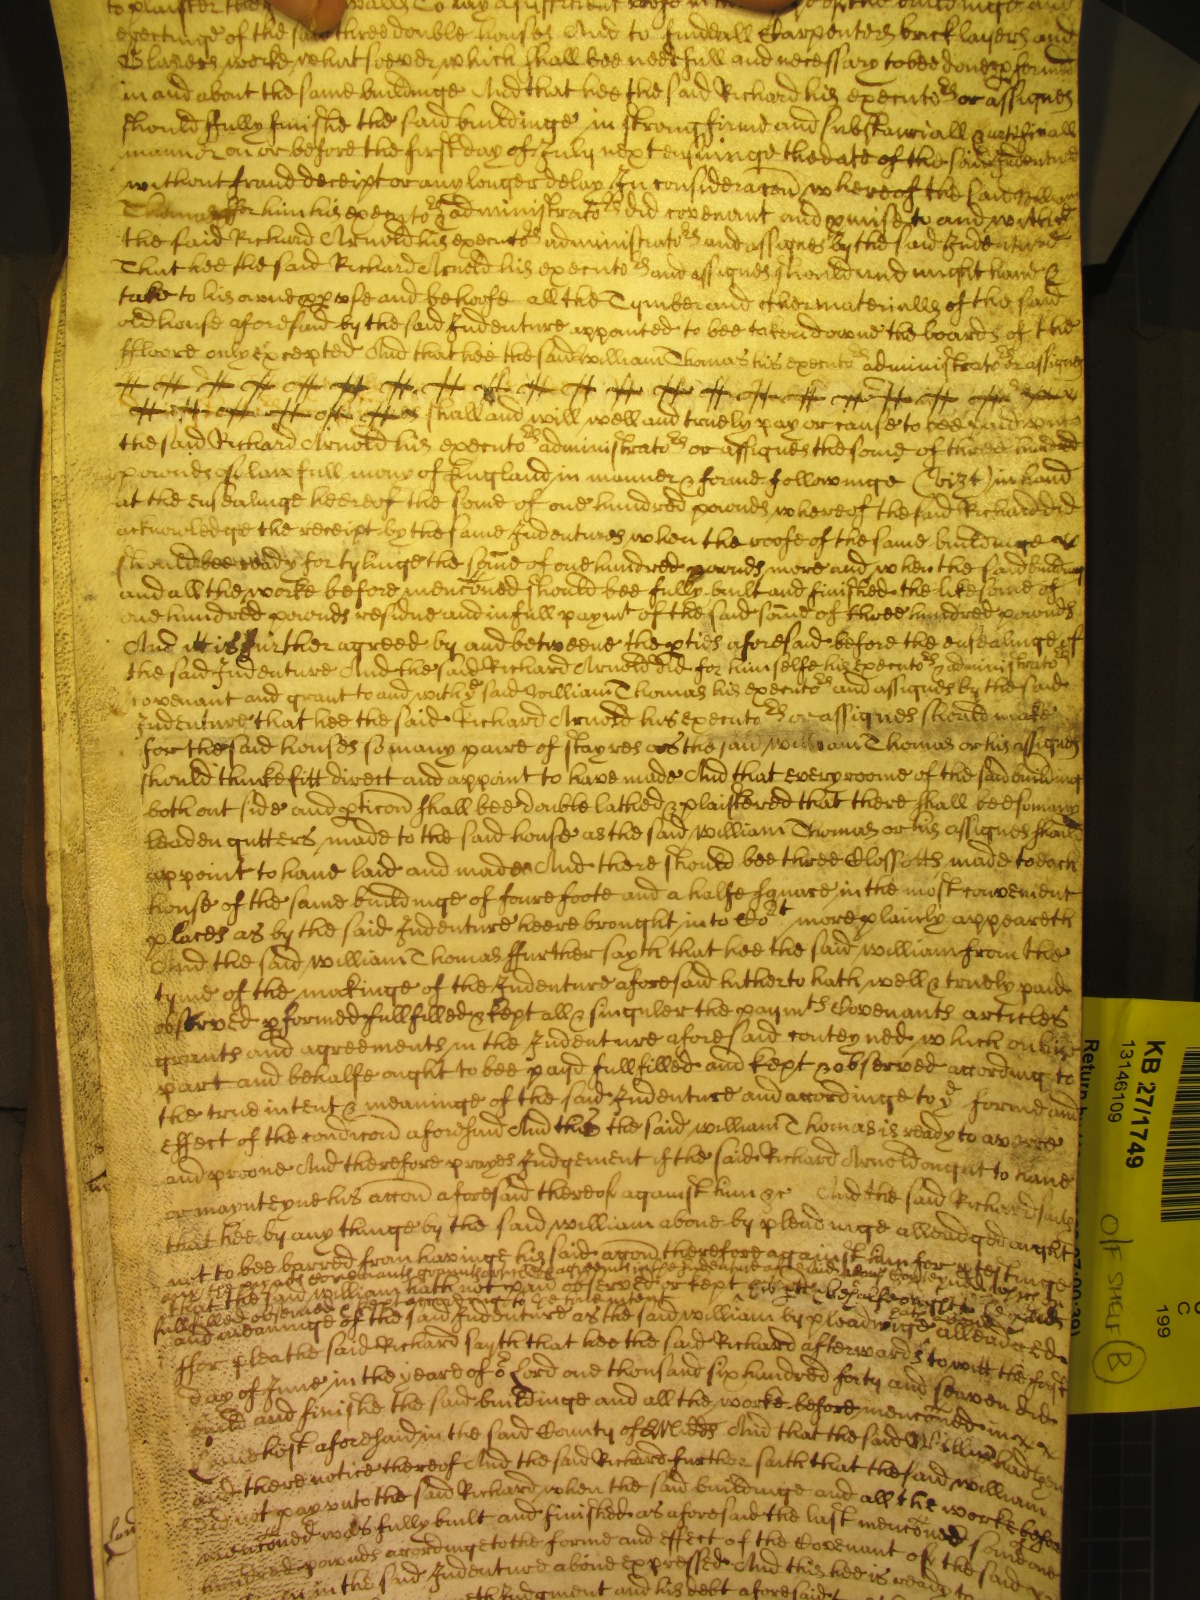 to plaister the walls To lay a sufficient roofe in the of the buildinge and
erectinge of the said three double houses And to finde all Carpenters bricklaiers and
Glasiers worke whatsoever which shall bee needfull and necessary to bee done & pformed
in and about the same buildinge And that hee the said Richard his executors or assignes
should fully finishe the said buildinge in strong firme and substantiall & artificiall
manner on or before the first day of July next ensuinge the date of the said Indenture
without fraud deceipt or any longer delay In consideracon whereof the said William
Thomas for him his executors & administrators did covenant and pmise to and with
the said Richard Arnold his executors administrators and assignes by the said Indenture
That hee the said Richard Arnold his executors and assignes should and might have &
take to his owne pp use and behoofe all the Tymber and other materialls of the said
old house aforesaid by the said Indenture appointed to bee taken downe the boards of the
ffloore only excepted And that hee the said William Thomas his executors administrators or assignes
shall and will well and truely pay or cause to bee paid unto
the said Richard Arnold his executors administrators or assignes the some of three hundred
pownds of lawfull mony of England in manner & forme followinge (vizt) in hand
at the ensealinge heereof the some of one hundred pownds whereof the said Richard did
acknowledge the receipt by the same Indentures when the roofe of the same buildinge
should bee ready for tylinge the some of one hundred pownds more and when the said buildinge
and all the worke before menconed should bee fully built and finished the like some of
one hundred pownds residue and in full paymt of the said some of three hundred pownds
And it is further agreed by and betweene the pties aforesaid before the ensealinge of
the said Indenture And the said Richard Arnold did for himselfe his executors & administrators
covenant and grant to and with ye said William Thomas his executors and assignes by the said
Indenture that hee the said Richard Arnold his executors or assignes should make
for the said houses so many paire of stayres as the said William Thomas or his assignes
should thinke fitt direct and appoint to have made And that every roome of the said buildinge
both out side and pticon shall bee double lathed & plaistered that there shall bee so many
leaden gutters made to the said house as the said William Thomas or his assignes should
appoint to have laid and made And there should bee three Clossetts made to each
house of the same buildinge of foure foote and a halfe square in the most convenient
places as by the said Indenture heere brought into Cort more plainly appeareth
And the said William Thomas ffurther sayth that hee the said William from the
tyme of the makinge of the Indenture aforesaid hitherto hath well & truely paid
observed pformed fullfilled & kept all & singuler the paymts Covenants articles
grants and agreements in the Indenture aforesaid conteyned which on his
part and behalfe ought to bee payd fullfilled and kept & observed according to
the true intent & meaninge of the said Indenture and accordinge to ye forme and
effect of the condicon aforesaid And this the said William Thomas is ready to averre
and proove And therefore prayes Judgement if the said Richard Arnold ought to have
or maynteyne his accon aforesaid thereof against him &c And the said Richard saith
that hee by any thinge by the said William above by pleadinge alleadged ought
not to bee barred from havinge his said accon therefore against him for ptestinge
that the said William hath not paid observed or kept
fullfilled observed
and meaninge of the said Indenture as the said William by pleadinge alleadged
ffor plea the said Richard sayth that hee the said Richard afterwards to witt the first
day of June in the yeare of or Lord one thousand six hundred forty and seaven did
build and finishe the said buildinge and all the worke before menconed in
aforesaid in the said County of Midds And that the said William had then
and there notice thereof And the said Richard further saith that the said William
did not pay unto the said Richard when the said buildinge and all the worke before
menconed was fully built and finished as aforesaid the last menconed some one
hundred pownds accordinge to the forme and effect of the Covenant of the said
in the said Indenture above expressed And this hee is ready to
Judgment and his debt aforesaid
KB 27/1749
13146109
Return
O/F SHELF
B
C
199